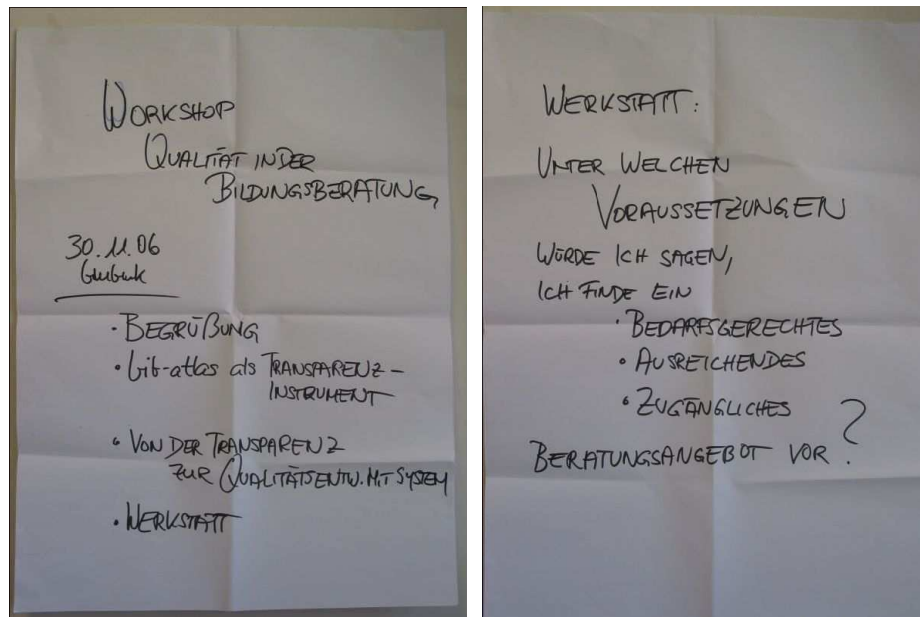 WORKSHOP
QUALITÄT IN DER
BILDUNGSBERATUNG
30.11.06
• BEGRÜßUNG
• bib-atlas als TRANSPARENZ-
INSTRUMENT
• VON DER TRANSPARENZ
ZUR QUALITÄTSENTW. MIT SYSTEM
• WERKSTATT
WERKSTATT:
UNTER WELCHEN
VORAUSSETZUNGEN
WÜRDE ICH SAGEN,
ICH FINDE EIN
• BEDARFSGERECHTES
• AUSREICHENDES
• ZUGÄNGLICHES
BERATUNGSANGEBOT VOR?